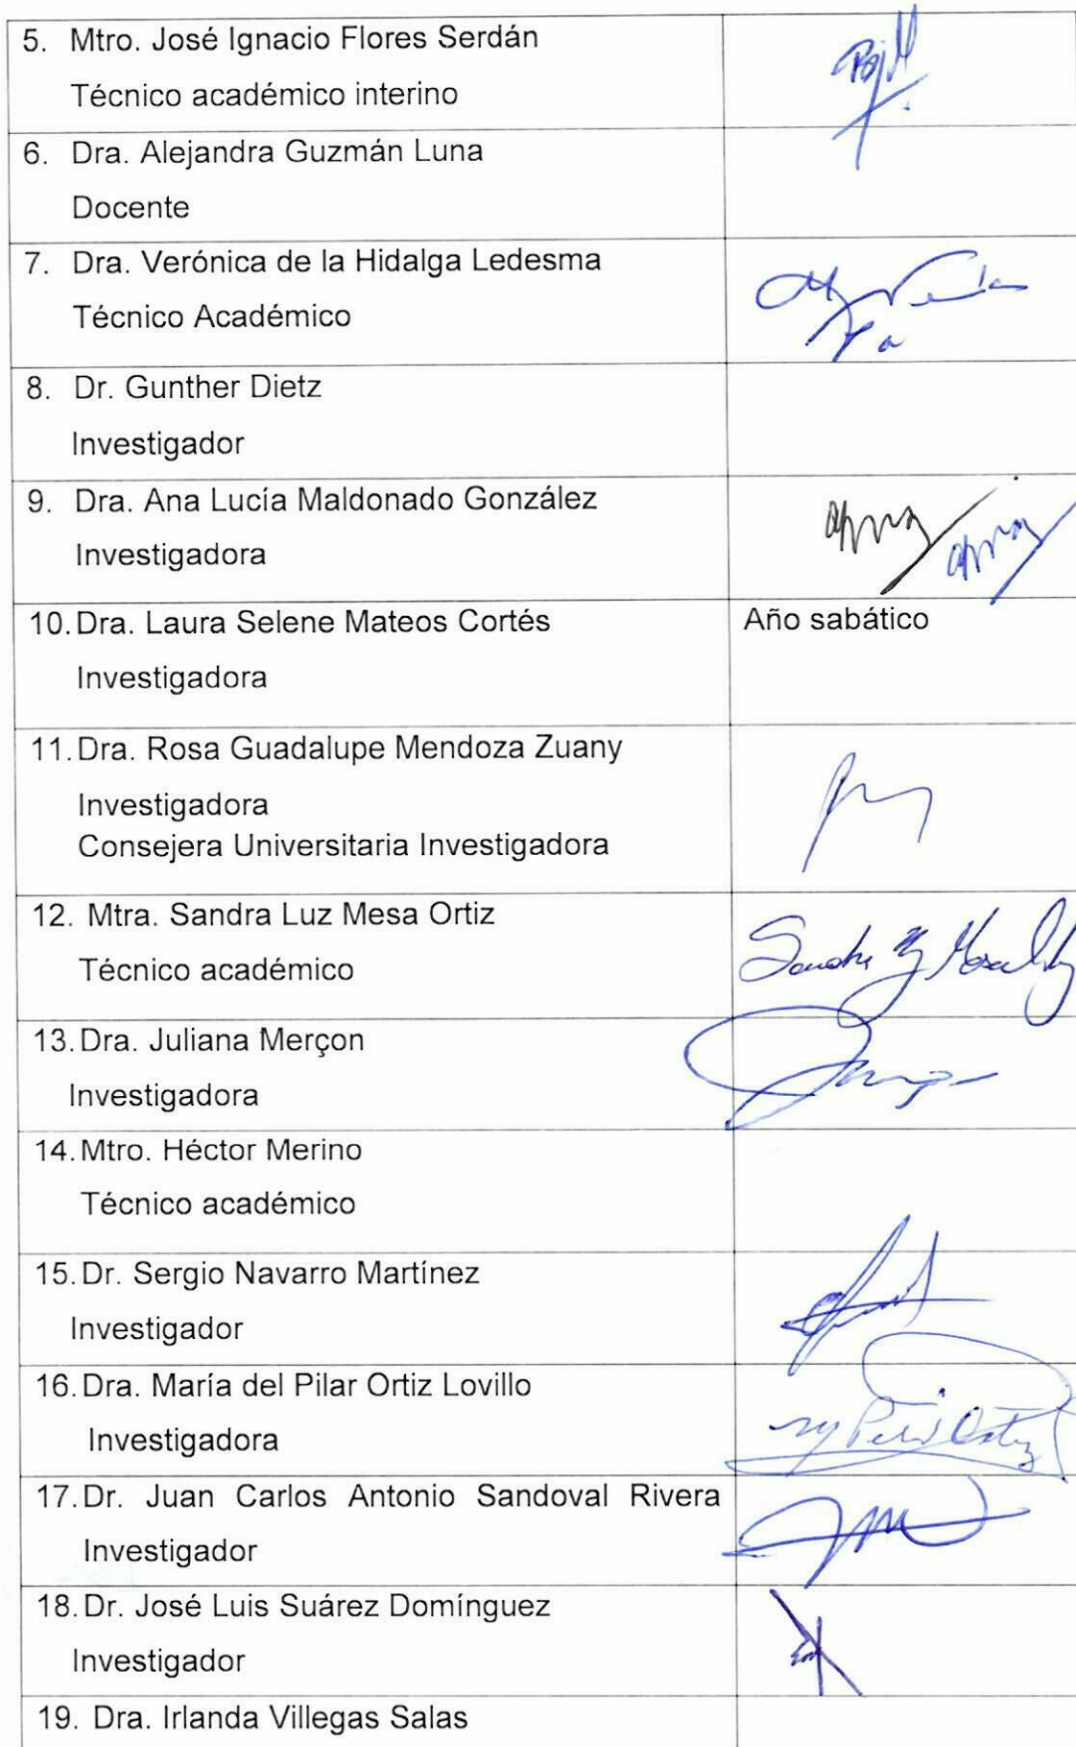 5. Mtro. José Ignacio Flores Serdán
Técnico académico interino
6. Dra. Alejandra Guzmán Luna
Docente
7. Dra. Verónica de la Hidalga Ledesma
Técnico Académico
8. Dr. Gunther Dietz
Investigador
9. Dra. Ana Lucía Maldonado González
Investigadora
10. Dra. Laura Selene Mateos Cortés Año sabático
Investigadora
11. Dra. Rosa Guadalupe Mendoza Zuany
Investigadora
Consejera Universitaria Investigadora
12. Mtra. Sandra Luz Mesa Ortiz
Técnico académico
13. Dra. Juliana Merçon
Investigadora
14. Mtro. Héctor Merino
Técnico académico
15. Dr. Sergio Navarro Martínez
Investigador
16. Dra. María del Pilar Ortiz Lovillo
Investigadora
17. Dr. Juan Carlos Antonio Sandoval Rivera
Investigador
18. Dr. José Luis Suárez Domínguez
Investigador
19. Dra. Irlanda Villegas Salas